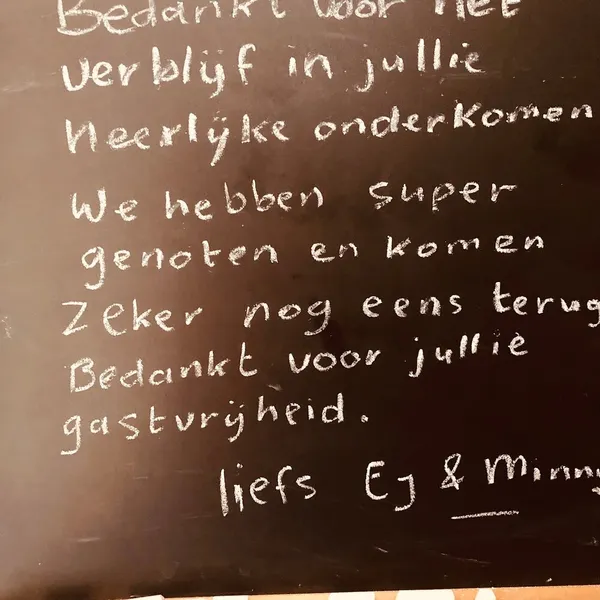 Bedankt voor het
verblijf in jullie
heerlijke onderkomen
We hebben super
genoten en komen
zeker nog eens terug
Bedankt voor jullie
gastvrijheid.
liefs Ej & Minny